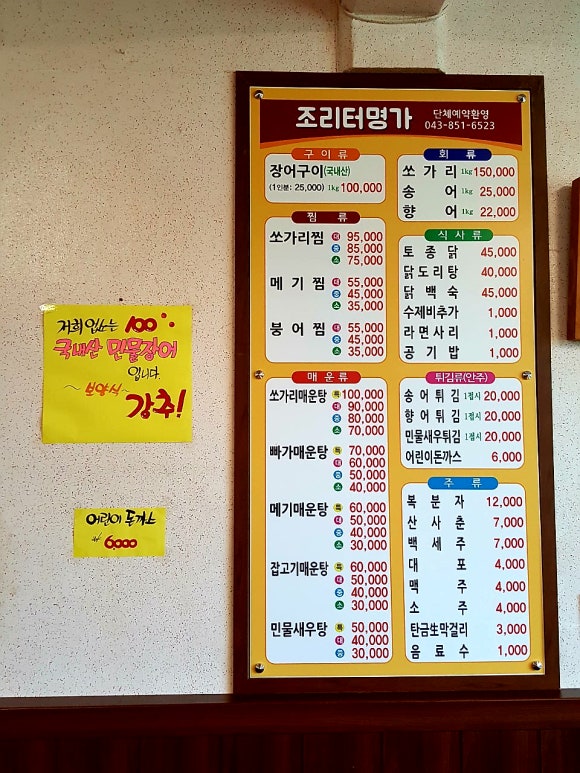 조리터명가
단체예약환영
043-851-6523
구이류
장어구이(국내산)
(1인분: 25,000) 1kg 100,000
찜류
쏘가리찜 대 95,000
중 85,000
소 75,000
메기찜 대 55,000
중 45,000
소 35,000
붕어찜 대 55,000
중 45,000
소 35,000
매운류
쏘가리매운탕 특 100,000
대 90,000
중 80,000
소 70,000
빠가매운탕 특 70,000
대 60,000
중 50,000
소 40,000
메기매운탕 특 60,000
대 50,000
중 40,000
소 30,000
잡고기매운탕 특 60,000
대 50,000
중 40,000
소 30,000
민물새우탕 특 50,000
대 40,000
중 30,000
회류
쏘가리 1kg 150,000
송어 1kg 25,000
향어 1kg 22,000
식사류
토종닭 45,000
닭도리탕 40,000
닭백숙 45,000
수제비추가 1,000
라면사리 1,000
공기밥 1,000
튀김류(안주)
송어튀김 1접시 20,000
향어튀김 1접시 20,000
민물새우튀김 1접시 20,000
어린이돈까스 6,000
주류
복분자 12,000
산사춘 7,000
백세주 7,000
대포 4,000
맥주 4,000
소주 4,000
탄금生막걸리 3,000
음료수 1,000
저희 업소는 100%
국내산 민물장어
입니다
~ 보양식~
강추!
어린이 돈까스
₩ 6,000